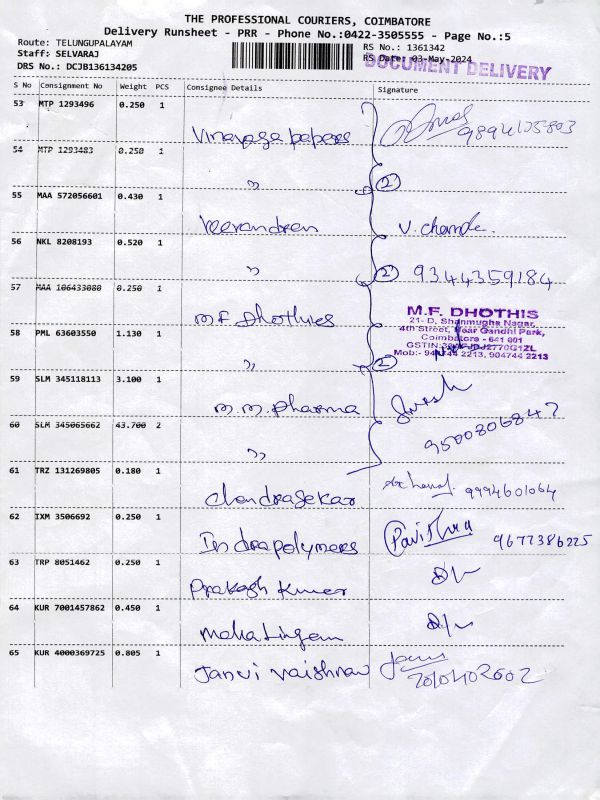 THE PROFESSIONAL COURIERS, COIMBATORE
Delivery Runsheet - PRR - Phone No.:0422-3505555 - Page No.:5
Route: TELUNGUPALAYAM
Staff: SELVARAJ
DRS No.: DCJB136134205
RS No.: 1361342
RS Date: 03-May-2024
DOCUMENT DELIVERY
S No Consignment No Weight PCS Consignee Details Signature
53 MTP 1293496 0.250 1
Vinayaga papers
54 MTP 1293483 0.250 1
" (2)
55 MAA 572056601 0.430 1
Veerandren V. Chande.
56 NKL 8208193 0.520 1
" (2) 9344359184
57 MAA 106433080 0.250 1
M.F. Dhothies
M.F. DHOTHIS
21- D, Shanmugha Nagar,
4th Street, Near Gandhi Park,
Coimbatore - 641 001
58 PML 63603550 1.130 1
" (2)
59 SLM 345118113 3.100 1
M.M. Pharma
60 SLM 345065662 43.700 2
" 9500806847
61 TRZ 131269805 0.180 1
Chandrasekar 9994601064
62 IXM 3506692 0.250 1
Indrapolymers Pavithra 9677386225
63 TRP 8051462 0.250 1
Prakash Kumar D/L
64 KUR 7001457862 0.450 1
Mahalingam D/L
65 KUR 4000369725 0.805 1
Janvi Vaishnav